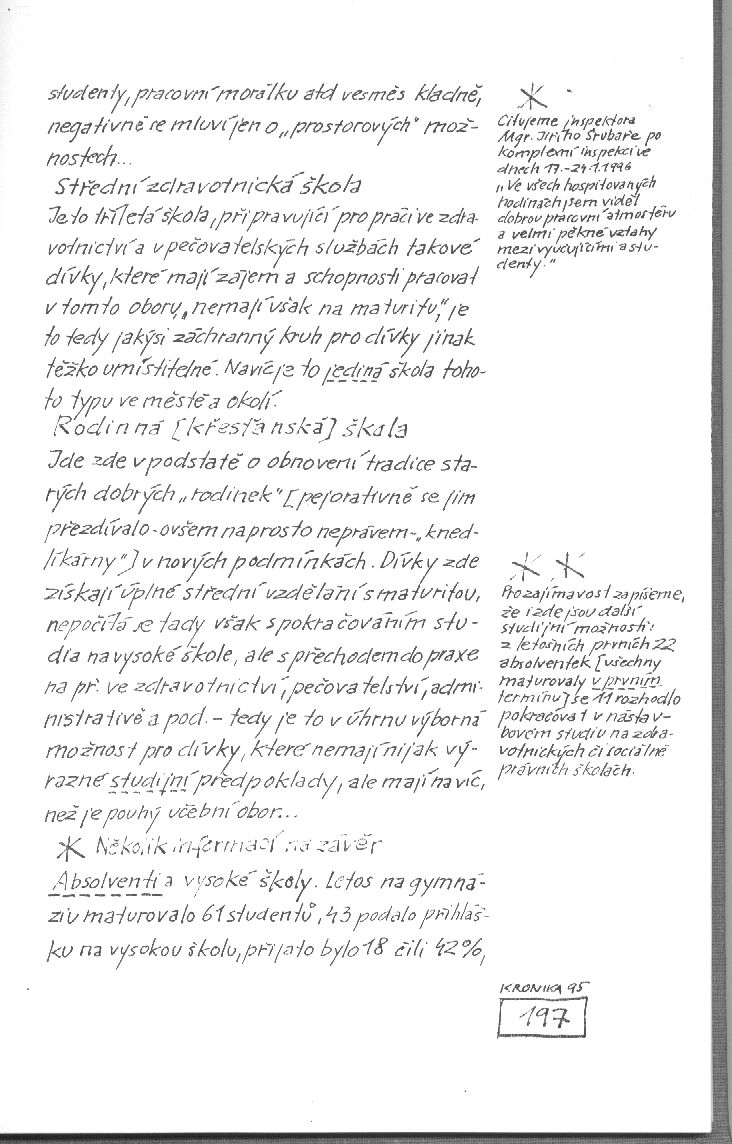 studenty, pracovní morálku atd vesměs kladně,
negativně se mluví jen o „prostorových" mož-
nostech...
Střední zdravotnická škola
Je to tříletá škola, připravující pro práci ve zdra-
votnictví a v pečovatelských službách takové
dívky, které mají zájem a schopnosti pracovat
v tomto oboru, „nemají však na maturitu," je
to tedy jakýsi záchranný kruh pro dívky jinak
těžko umístitelné. Navíc je to jediná škola toho-
to typu ve městě a okolí.
Rodinná [křesťanská] škola
Jde zde v podstatě o obnovení tradice sta-
rých dobrých „rodinek" [pejorativně se jim
přezdívalo - ovšem naprosto neprávem - „kned-
líkárny"] v nových podmínkách. Dívky zde
získají úplné střední vzdělání s maturitou,
nepočítá se tady však s pokračováním stu-
dia na vysoké škole, ale s přechodem do praxe
na př. ve zdravotnictví, pečovatelství, admi-
nistrativě a pod. - tedy je to v úhrnu výborná
možnost pro dívky, které nemají nijak vý-
razné studijní předpoklady, ale mají na víc,
než je pouhý učební obor...
* Několik informací na závěr
Absolventi a vysoké školy. Letos na gymná-
ziu maturovalo 61 studentů, 43 podalo přihláš-
ku na vysokou školu, přijato bylo 18 čili 42%,
*
Citujeme inspektora
Mgr. Jiřího Strubaře po
komplexní inspekci ve
dnech 17.-24.1.1996
„Ve všech hospitovaných
hodinách jsem viděl
dobrou pracovní atmosféru
a velmi pěkné vztahy
mezi vyučujícími a stu-
denty."
* *
Pro zajímavost zapíšeme,
že i zde jsou další
studijní možnosti:
z letošních prvních 22
absolventek [všechny
maturovaly v prvním
termínu] se 11 rozhodlo
pokračovat v násta v-
bovém studiu na zdra-
votnických či sociálně
právních školách.
KRONIKA 95
197